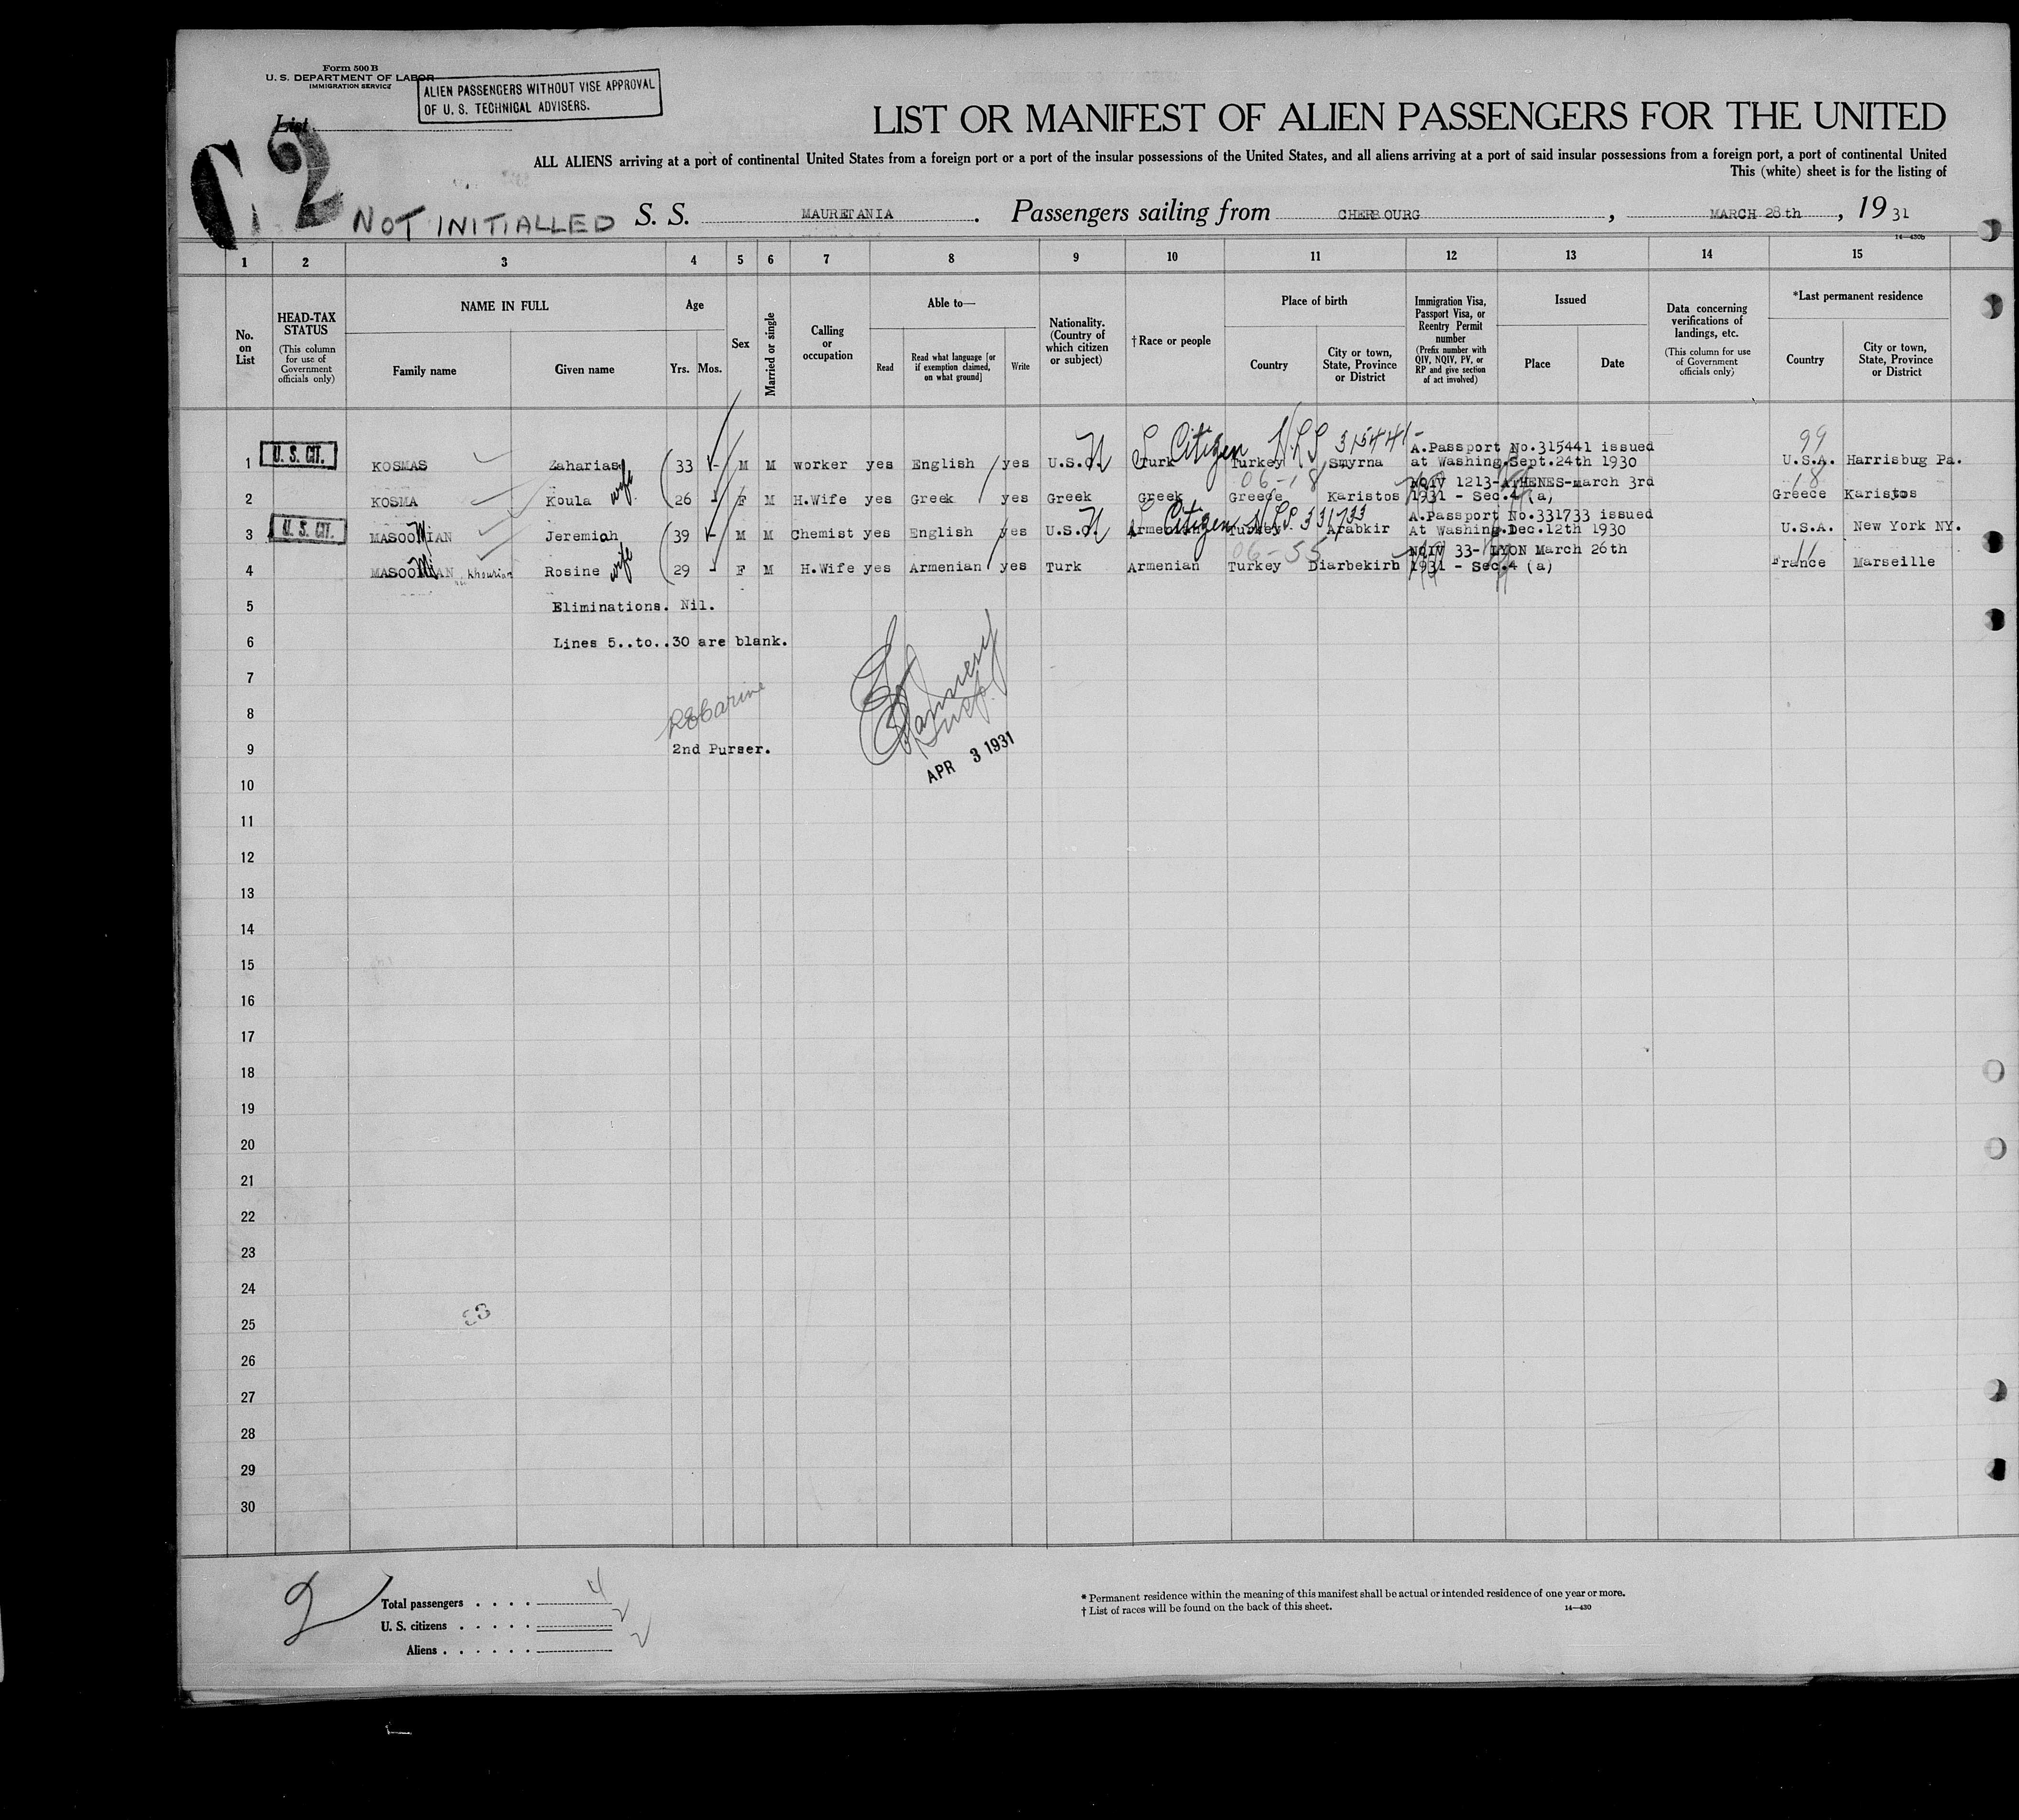 Form 500 B
U. S. DEPARTMENT OF LABOR
IMMIGRATION SERVICE
ALIEN PASSENGERS WITHOUT VISE APPROVAL
OF U. S. TECHNICAL ADVISERS.
List
2
LIST OR MANIFEST OF ALIEN PASSENGERS FOR THE UNITED
ALL ALIENS arriving at a port of continental United States from a foreign port or a port of the insular possessions of the United States, and all aliens arriving at a port of said insular possessions from a foreign port, a port of continental United
This (white) sheet is for the listing of
NOT INITIALLED S. S. MAURETANIA . Passengers sailing from CHERBOURG , MARCH 28th , 19 31
14—430b
1 2 3 4 5 6 7 8 9 10 11 12 13 14 15
No. on List
HEAD-TAX STATUS (This column for use of Government officials only)
NAME IN FULL
Family name Given name
Age
Yrs. Mos.
Sex
Married or single
Calling or occupation
Able to—
Read Read what language [or if exemption claimed, on what ground] Write
Nationality. (Country of which citizen or subject)
†Race or people
Place of birth
Country City or town, State, Province or District
Immigration Visa, Passport Visa, or Reentry Permit number (Prefix number with QIV, NQIV, PV, or RP and give section of act involved)
Issued
Place Date
Data concerning verifications of landings, etc. (This column for use of Government officials only)
*Last permanent residence
Country City or town, State, Province or District
Citizen 315441- 99
A.Passport No.315441 issued
1 U. S. CIT. KOSMAS Zaharias 33 - M M worker yes English yes U.S.A. Turk Turkey Smyrna at Washing.Sept.24th 1930 U.S.A. Harrisbug Pa.
06-18 NQIV 1213-ATHENES-march 3rd 18
2 KOSMA Koula wife 26 - F M H.Wife yes Greek yes Greek Greek Greece Karistos 1931 - Sec.4 (a) Greece Karistos
Citizen 331733 A.Passport No.331733 issued
3 U. S. CIT. MASOOMIAN Jeremiah 39 - M M Chemist yes English yes U.S.A. Armenian Turkey Arabkir At Washing.Dec.12th 1930 U.S.A. New York NY.
06-55 NQIV 33- LYON March 26th 11
4 MASOOMIAN Khourian Rosine wife 29 - F M H.Wife yes Armenian yes Turk Armenian Turkey Diarbekirh 1931 - Sec.4 (a) France Marseille
5 Eliminations. Nil.
6 Lines 5..to..30 are blank.
7
8
9 2nd Purser.
APR 3 1931
10
11
12
13
14
15
16
17
18
19
20
21
22
23
24
25
26
27
28
29
30
2
Total passengers . . . . 4
U. S. citizens . . . . . 2
Aliens . . . . . . 2
* Permanent residence within the meaning of this manifest shall be actual or intended residence of one year or more.
† List of races will be found on the back of this sheet.
14—430